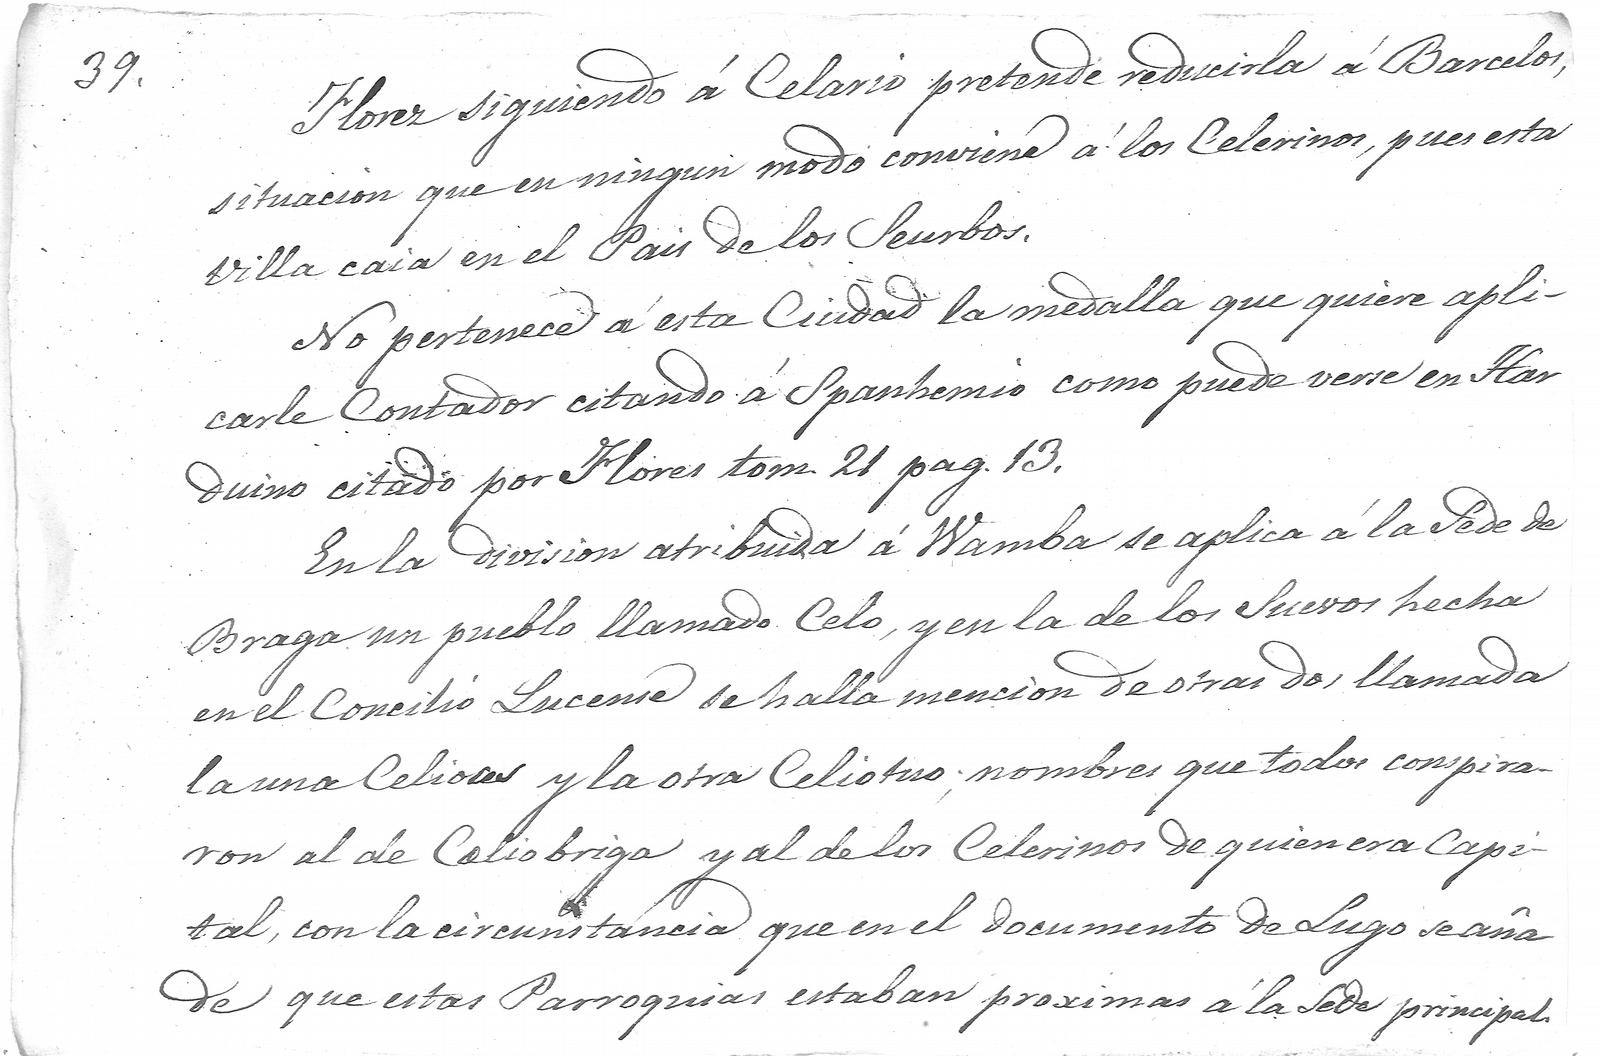 39.
Florez siguiendo á Celario pretende reducirla á Barcelos,
situacion que en ningun modo conviene á los Celerinos, pues esta
villa caia en el Pais de los Seurbos.
No pertenece á esta Ciudad la medalla que quiere apli-
carle Contador citando á Spanhemio como puede verse en Har
duino citado por Flores tom. 21 pag. 13.
En la division atribuida á Wamba se aplica á la Sede de
Braga un pueblo llamado Celo, y en la de los Suevos hecha
en el Concilio Lucense se halla mencion de otras dos llamada
la una Celioces y la otra Celiotuo; nombres que todos conspira-
ron al de Cæliobriga y al de los Celerinos de quien era Capi-
tal, con la circunstancia que en el documento de Lugo se aña
de que estas Parroquias estaban proximas á la Sede principal.